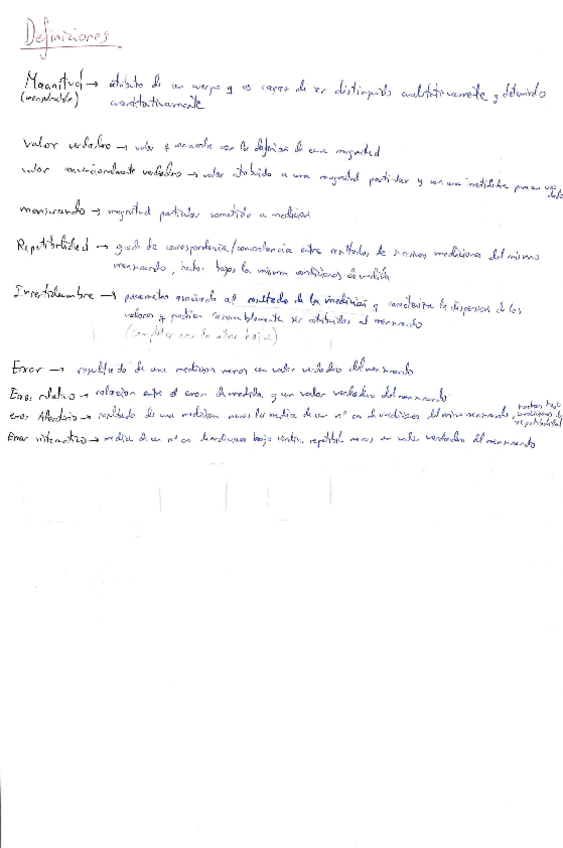 Definiciones
Magnitud → atributo de un cuerpo q es capaz de ser distinguido cualitativamente y determinado
(mensurable) cuantitativamente
Valor verdadero → valor q concuerda con la definición de una magnitud
valor convencionalmente verdadero → valor atribuido a una magnitud particular y con una incertidumbre para un uso dado
mensurando → magnitud particular sometida a medición
Repetibilidad → grado de correspondencia/concordancia entre resultados de sucesivas mediciones del mismo
mensurando, bajo las mismas condiciones de medida
Incertidumbre → parametro asociado al resultado de la medicion q caracteriza la dispersion de los
valores q podrian razonablemente ser atribuidos al mensurando
(completar con la otra hoja)
Error → resultado de una medicion menos un valor verdadero del mensurando
Error relativo → relacion entre el error de medida y un valor verdadero del mensurando
error Aleatorio → resultado de una medicion menos la media de un nº ∞ de mediciones del mismo mensurando, condiciones de repetibilidad
Error sistematico → media de un nº ∞ de mediciones bajo condic. repetibil. menos un valor verdadero del mensurando